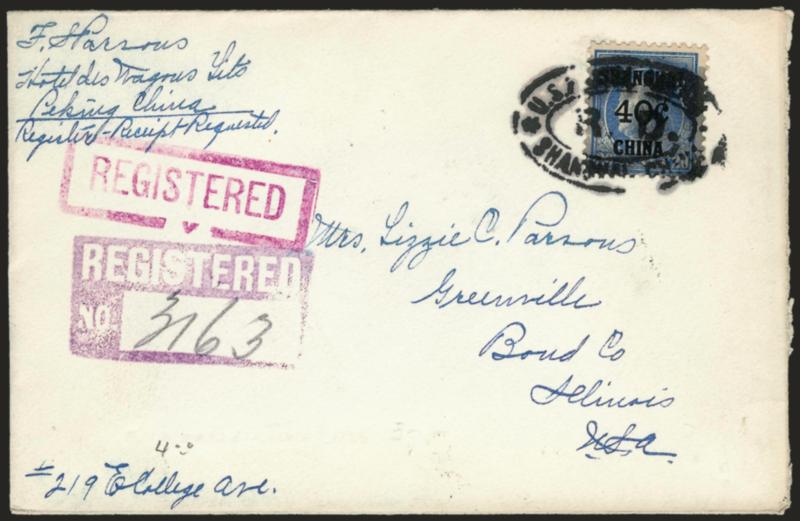 F. Parsons
Hotel des Wagons Lits
Peking China
Register - Receipt Requested.
SHANGHAI
40¢
CHINA
U.S.
R. D.
SHANGHAI CHINA
REGISTERED
REGISTERED
NO. 3163
Mrs. Lizzie C. Parsons
Greenville
Bond Co
Illinois
U.S.A.
#219 E College Ave.